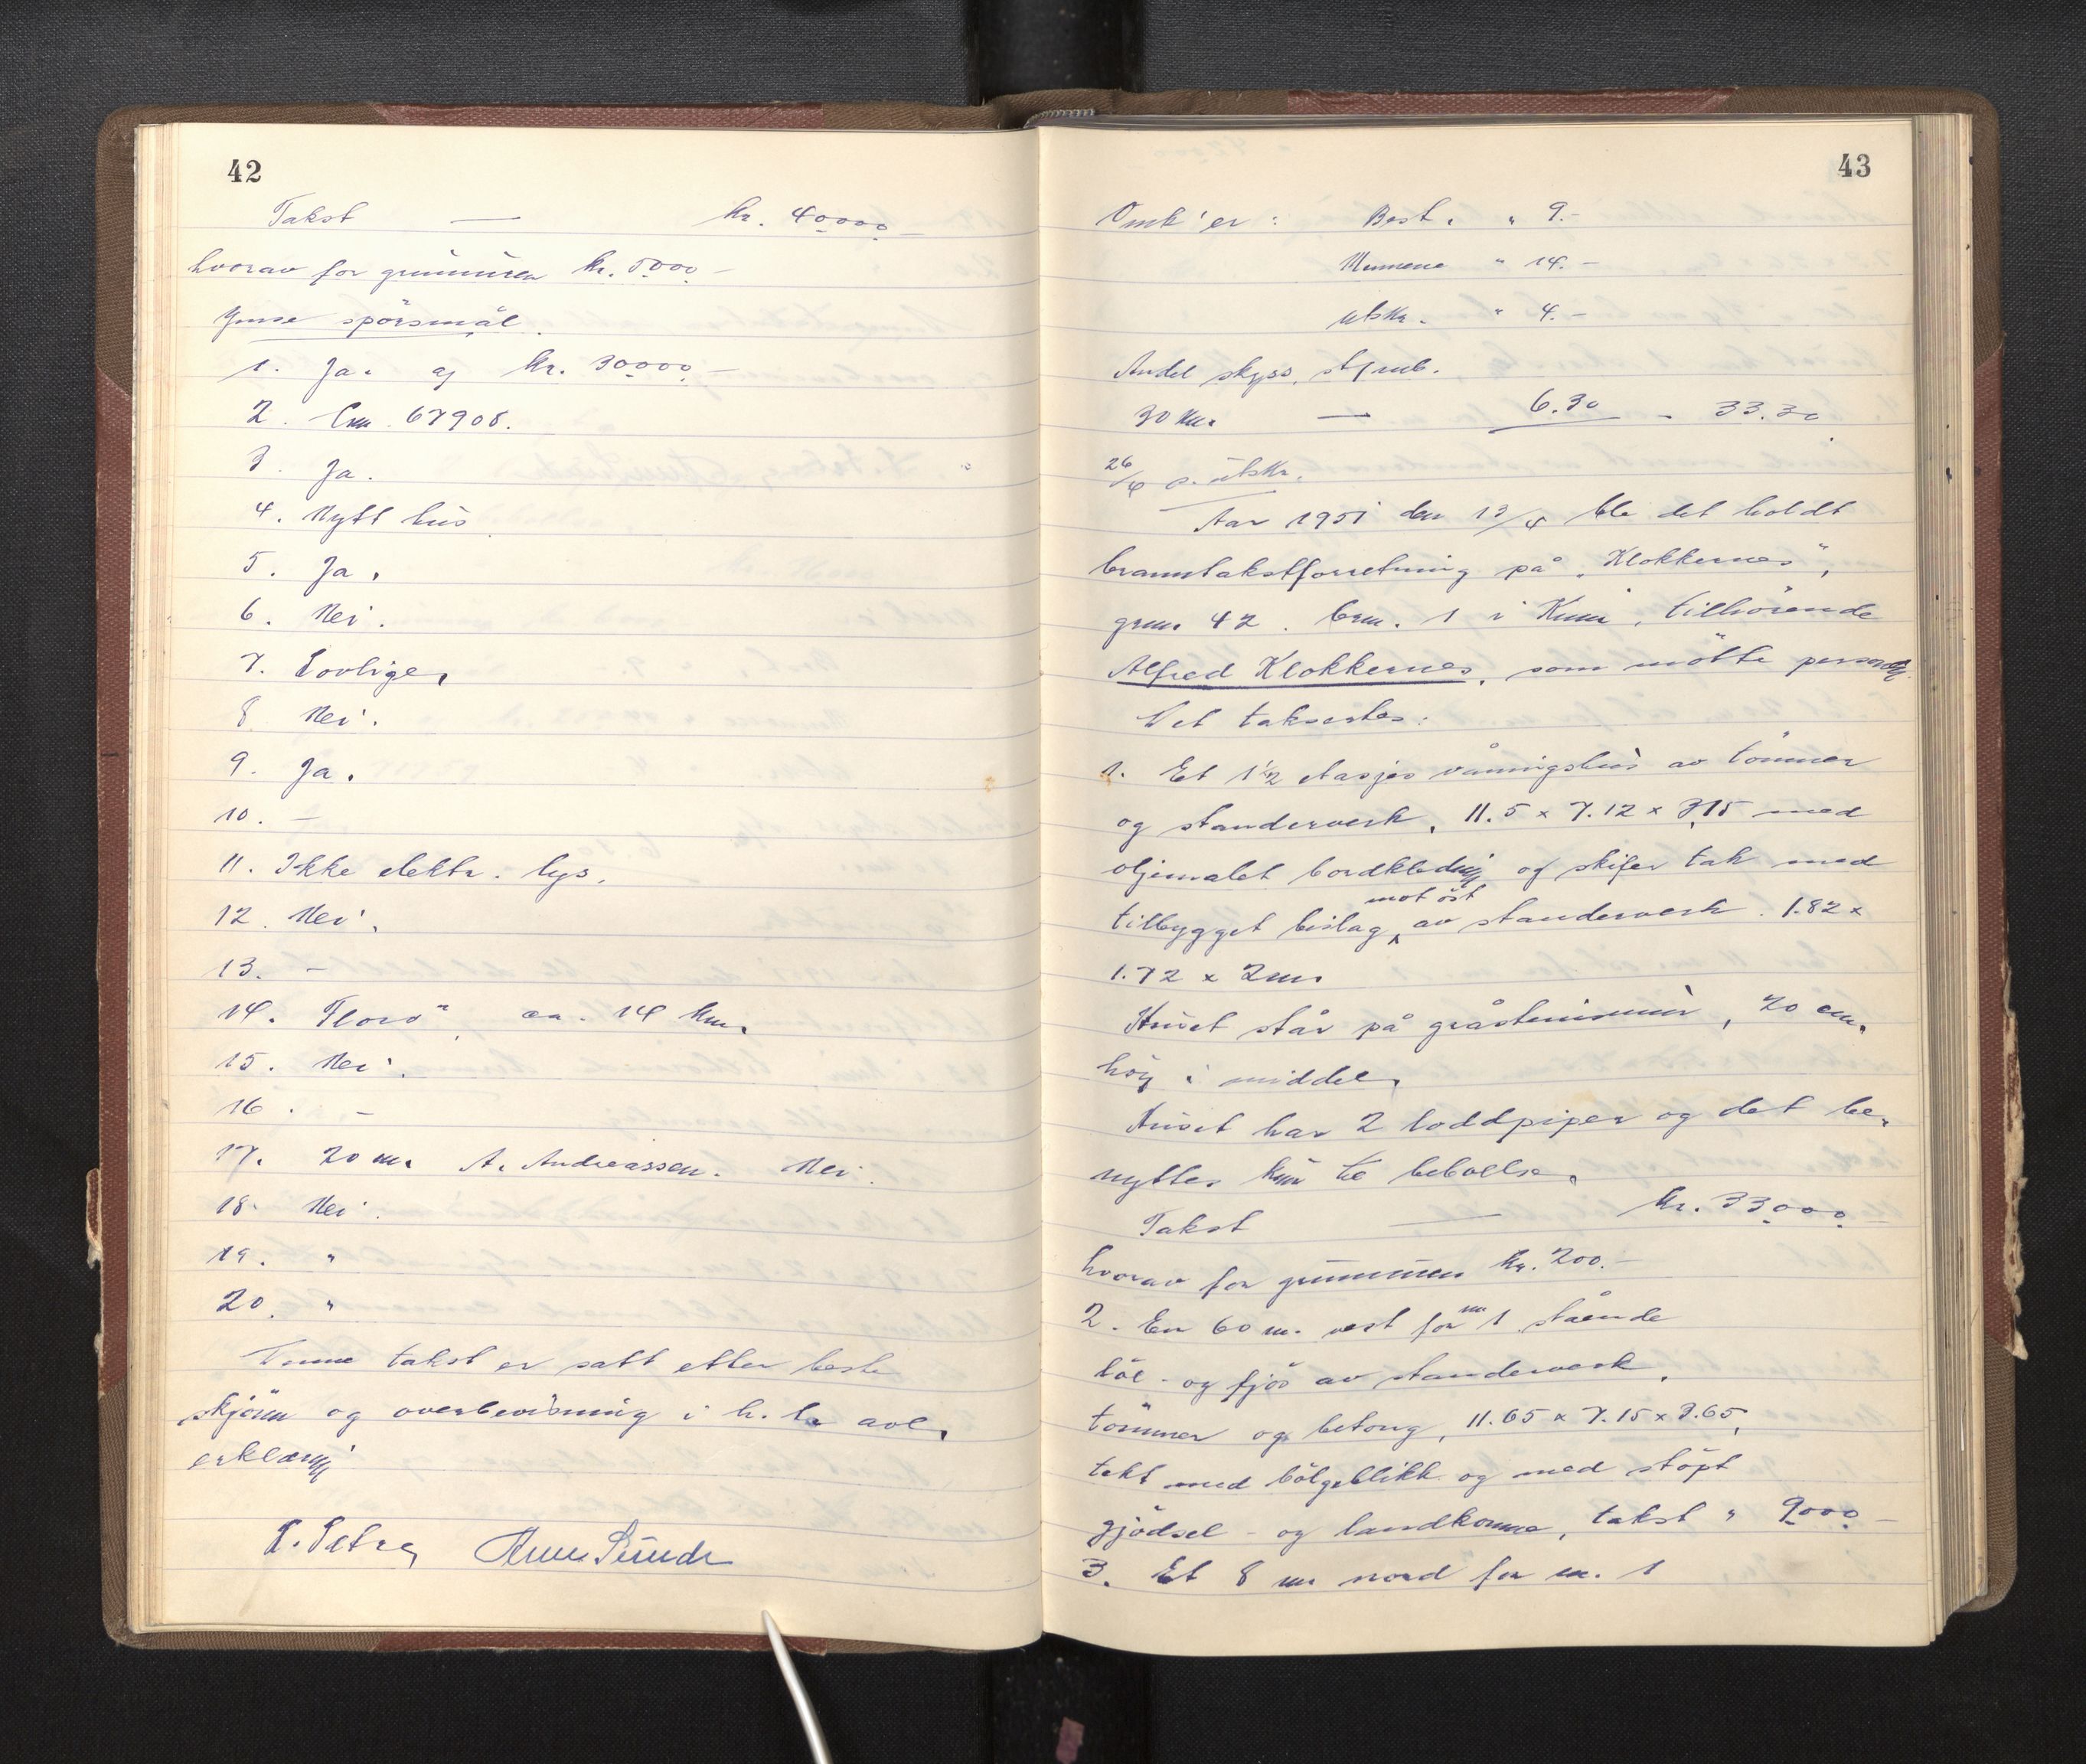 42
Takst — kr. 40000.-
hvorav for grunnmuren kr. 5000.-
Ymse spörsmål.
1. Ja. og kr. 30000.-
2. Lnr. 67908.
3. Ja.
4. Nytt hus
5. Ja.
6. Nei.
7. Lovlige.
8. Nei.
9. Ja.
10. -
11. Ikke elektr. lys.
12. Nei.
13. -
14. Florö, ca. 14 km.
15. Nei.
16. -
17. 20 m. A. Andreassen. Nei.
18. Nei.
19. "
20. "
Denne takst er satt etter beste
skjönn og overbevisning i h. t. avl.
erklæring
Arne Sunde
43
Omk'er: Best. " 9.-
Mennene " 14.-
utskr. " 4.-
Andel skyss,
30 km. — 6.30 - 33.30
26/4 s. utskr.
Aar 1951 den 13/4 ble det holdt
branntakstforretning på "Klokkernes",
gnr. 42. bnr. 1 i Kinn, tilhörende
Alfred Klokkernes, som mötte personlig.
Det taksertes:
1. Et 1 1/2 etasjes våningshus av tömmer
og standerverk, 11.5 x 7.12 x 3,75 med
oljemalet bordkledning og skifer tak med
tilbygget bislag mot öst av standerverk. 1.82 x
1.72 x 2 m.
Huset står på gråsteinsmur, 70 cm.
höy i middel.
Huset har 2 loddpiper og det be-
nyttes kun til beboelse.
Takst — kr. 33000.-
hvorav for grunnmuren kr. 200.-
2. En 60 m. vest for nr 1 stående
löe- og fjös av standerverk,
tömmer og betong, 11.65 x 7.15 x 3.65,
tekt med bölgeblikk og med stöpt
gjödsel- og landkomme, takst " 9000.-
3. Et 8 m nord for nr. 1